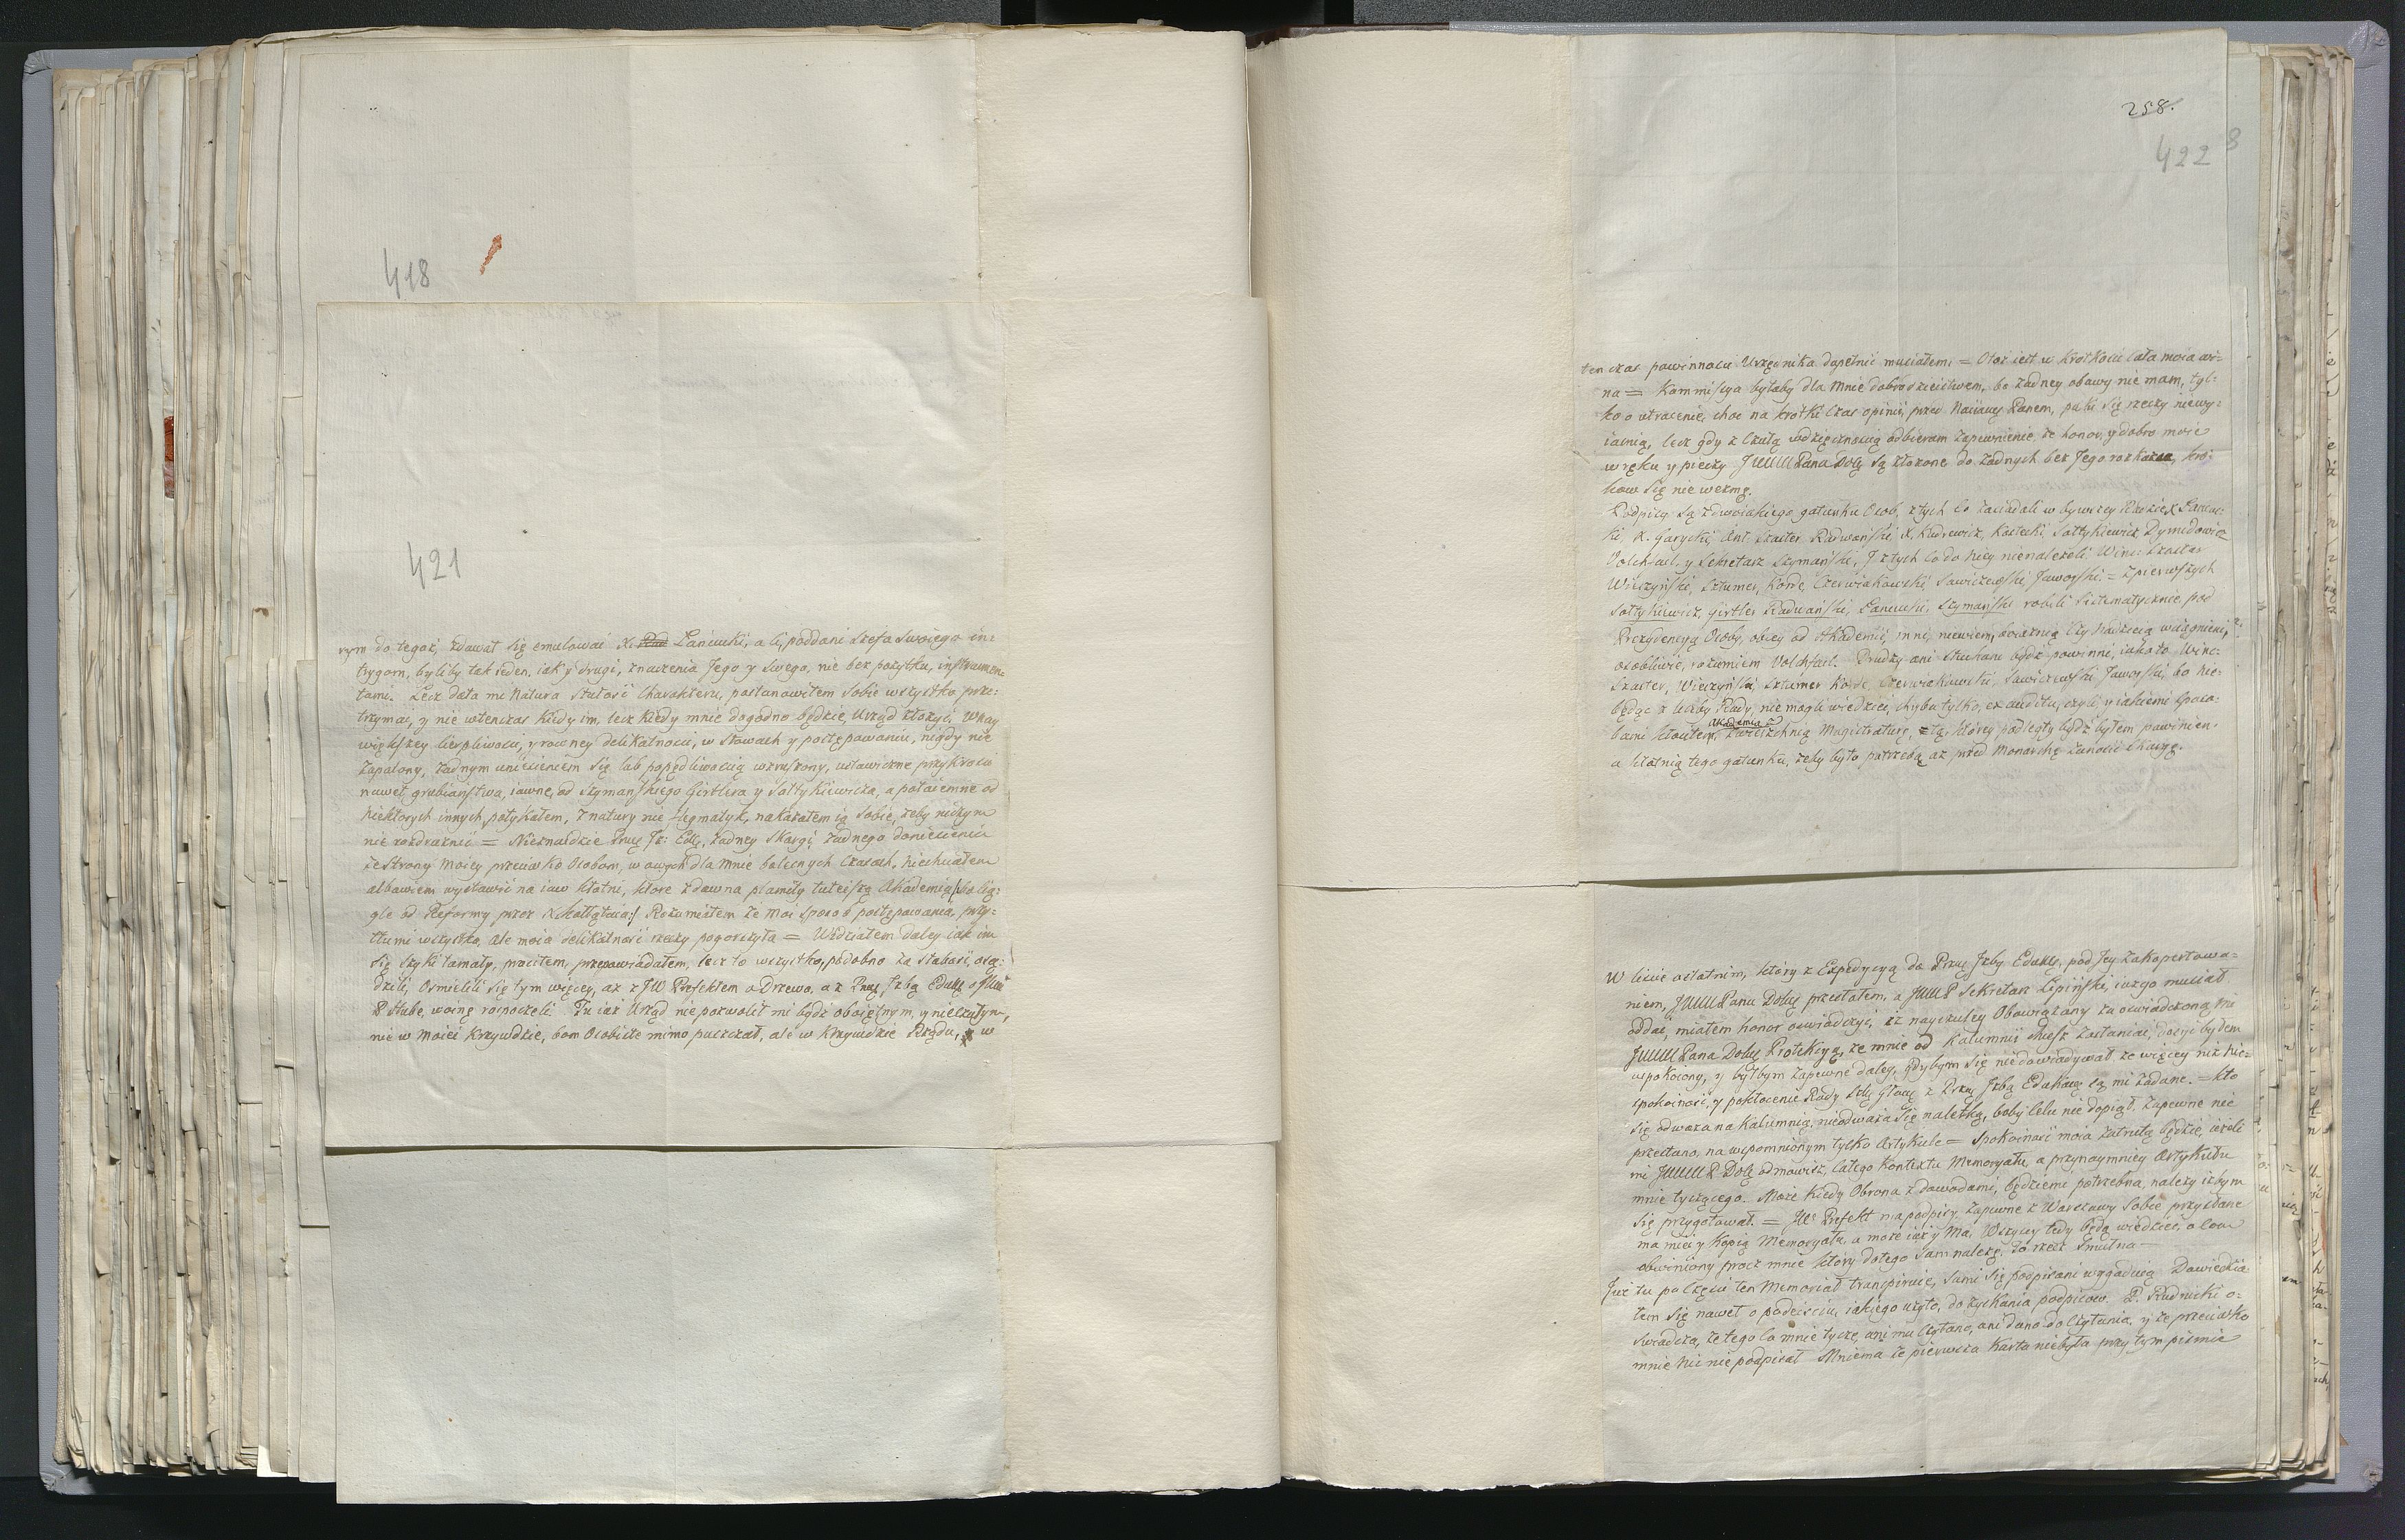 418
421
rym do tegoż, zdawał się emulować X. Łańcucki, a ci, poddani Szefa Swoiego in-
trygom, byliby tak jeden, iak y drugi, znaczenia Jego y Swego, nie bez pożytku, instrumen-
tami. Lecz dała mi Natura Stałość Charakteru, postanowiłem sobie wszystko prze-
trzymać, y nie wtenczas kiedy im, lecz kiedy mnie dogodno będzie, Urząd złożyć. W nay
większey cierpliwości, y rowney delikatności, w słowach y postępowaniu, nigdy nie
zapalony, żadnym uniesieniem się lub popędliwością wzruszony, ustawiczne przykrości
nawet grubiaństwa, iawne, od Szymańskiego Girtlera y Sołtykiewicza, a potaiemne od
niektorych innych, potykałem, z natury nie flegmatyk, nakazałem ią sobie, żeby niczym
nie rozdrażnić = Nieznaydzie Prześ. Jz: Edu, żadney Skargi, żadnego doniesienia
ze strony moiey przeciwko Osobom, w owych dla mnie bolesnych Czasach, niechciałem
albowiem wystawić na iaw kłotni, ktore zdawna plamiły tuteyszą Akademią /: bo cią-
gle od Reformy przez X. Kołłątaia :/ Rozumiałem że moi sposob postępowania, przy-
tłumi wszystko, ale moia delikatność rzeczy pogorszyła = Widziałem daley iak im
się szyki łamały, prosiłem, przepowiadałem, lecz to wszystko, podobno za słabość, osą-
dzili, Osmielili się tym więcey, aż z JW Prefektem o Drzewo, a z Prześ Jzbą Eduk o JWW
P Hube, woinę rospoczeli. Tu iuż Urząd nie pozwolił mi bydź oboiętnym, y nieczułym,
nie w Moiei Krzywdzie, bom Osobiste mimo puszczał, ale w Krzywdzie Rządu, w
258.
422
8
ten czas powinności Urzędnika dopełnić musiałem. = Otoż iest w krotkości cała moia wi-
na = Kommissya byłaby dla Mnie dobrodzieistwem, bo żadney obawy nie mam, tyl-
ko o utracenie, choć na krotki czas opinii, przed Naiiaśn. Panem, poki się rzeczy niewy-
iaśnią, lecz gdy z czułą wdzięcznością odbieram zapewnienie, że honor, y dobro moie
w ręku y pieczy JWWW Pana Dob. są złożone do żadnych bez Jego rozkazu, kro-
kow się nie wezmę.
Podpisy są z dwoiakiego gatunku Osob, z tych co zasiadali w bywszey Radzie X Łańcuc-
ki, X. Garycki, Ant. Szaster, Radwański X. Kudrewicz, Kostecki, Sołtykiewicz, Dymidowicz
Voichsel, y Sekretarz Szymański, J z tych co do niey nienależeli. Winc: Szaster
Wilczyński, Szturmer, Kodre, Czerwiakowski Sawiczewski, Jaworski. = Z pierwszych
Sołtykiewicz, Girtler Radwański, Łańcucki, Szymański robili sistematycznie, pod
Prezydencyą Osoby, obcey od Akademii, inni, niewiem, boiaznią czy nadzieią wciągnieni,
osobliwie, rozumiem Voichsel. Drudzy ani słuchani bydź powinni, iako to Winc:
Szaster, Wilczyński, Szturmer Kodre, Czerwiakowski, Sawiczewski, Jaworski, bo nie-
będąc z liczby Rady, nie mogli wiedzieć, chyba tylko, ex auditu, czyli, y iakiemi sposo-
Akademia
bami kłociłem, zwierzchnią Magistraturę, z tą, ktorey podległy bydź byłem powinien.
a kłotnią tego gatunku, żeby było potrzebą, aż przed Monarchę zanosić Skargę.
W liscie ostatnim, ktory z Expedycyą do Prześ Jzby Edukc, pod Jey zakopertowa-
niem, JWWW Panu Dob. przesłałem, a JWW P Sekretarz Lipiński, iuż go musiał
oddać, miałem honor oswiadczyć, iż nayczuley Obowiązany za oswiadczoną mi
JWWW Pana Dob. Protekcyą, że mnie od Kalumnii chcesz zasłaniać, dosyć byłem
uspokoiony, y byłbym zapewne daley, gdybym się niedowiadywał, że więcey niż nie-
spokoiność, y pokłocenie Rady Szk. Głow. z Prześ Jzbą Edukac. są mi zadane. = Kto
się odważa na Kalumnią, nieodważa się na letką, boby celu nie dopiął. Zapewne nie
przestano, na wspomnionym tylko Artykule = Spokoiność moia zatrutą będzie, ieżeli
mi JWWW P Dob. odmowisz, całego Kontextu Memoryału, a przynaymniey Artykułu
mnie tyczącego. Może kiedy Obrona z dowodami, będzie mi potrzebna, należy iżbym
się przygotował. = JW Prefekt ma podpisy, zapewne z Warszawy sobie przysłane
ma mieć y Kopią Memoryału, a może iuż y ma, Wszyscy tedy będą wiedzieć, o com
obwiniony procz mnie ktory do tego sam należę, to rzecz smutna —
Już tu po części ten Memoriał transpiruie, sami się podpisani wygaduią Dowiedzia-
łem się nawet o podeiściu, iakiego użyto, do zyskania podpisow. P. Rudnicki o-
swiadcza, że tego co mnie tycze, ani mu czytano, ani dano do czytania, y że przeciwko
mnie nic nie podpisał Mniema że pierwsza Karta niebyła przy tym pismie